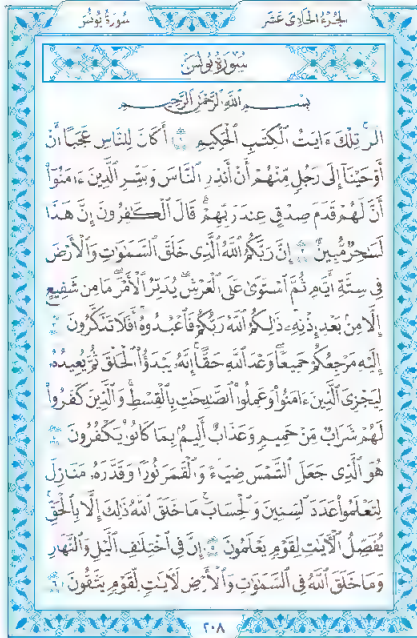 الجزء الحادي عشر
سورة يونس
سورة يونس
بِسْمِ ٱللَّهِ ٱلرَّحْمَٰنِ ٱلرَّحِيمِ
الٓر تِلْكَ ءَايَٰتُ ٱلْكِتَٰبِ ٱلْحَكِيمِ ١ أَكَانَ لِلنَّاسِ عَجَبًا أَنْ
أَوْحَيْنَآ إِلَىٰ رَجُلٍ مِّنْهُمْ أَنْ أَنذِرِ ٱلنَّاسَ وَبَشِّرِ ٱلَّذِينَ ءَامَنُوٓا۟
أَنَّ لَهُمْ قَدَمَ صِدْقٍ عِندَ رَبِّهِمْ قَالَ ٱلْكَٰفِرُونَ إِنَّ هَٰذَا
لَسَٰحِرٌ مُّبِينٌ ٢ إِنَّ رَبَّكُمُ ٱللَّهُ ٱلَّذِى خَلَقَ ٱلسَّمَٰوَٰتِ وَٱلْأَرْضَ
فِى سِتَّةِ أَيَّامٍ ثُمَّ ٱسْتَوَىٰ عَلَى ٱلْعَرْشِ يُدَبِّرُ ٱلْأَمْرَ مَا مِن شَفِيعٍ
إِلَّا مِنۢ بَعْدِ إِذْنِهِۦ ذَٰلِكُمُ ٱللَّهُ رَبُّكُمْ فَٱعْبُدُوهُ أَفَلَا تَذَكَّرُونَ ٣
إِلَيْهِ مَرْجِعُكُمْ جَمِيعًا وَعْدَ ٱللَّهِ حَقًّا إِنَّهُۥ يَبْدَؤُا۟ ٱلْخَلْقَ ثُمَّ يُعِيدُهُۥ
لِيَجْزِىَ ٱلَّذِينَ ءَامَنُوا۟ وَعَمِلُوا۟ ٱلصَّٰلِحَٰتِ بِٱلْقِسْطِ وَٱلَّذِينَ كَفَرُوا۟
لَهُمْ شَرَابٌ مِّنْ حَمِيمٍ وَعَذَابٌ أَلِيمٌۢ بِمَا كَانُوا۟ يَكْفُرُونَ ٤
هُوَ ٱلَّذِى جَعَلَ ٱلشَّمْسَ ضِيَآءً وَٱلْقَمَرَ نُورًا وَقَدَّرَهُۥ مَنَازِلَ
لِتَعْلَمُوا۟ عَدَدَ ٱلسِّنِينَ وَٱلْحِسَابَ مَا خَلَقَ ٱللَّهُ ذَٰلِكَ إِلَّا بِٱلْحَقِّ
يُفَصِّلُ ٱلْءَايَٰتِ لِقَوْمٍ يَعْلَمُونَ ٥ إِنَّ فِى ٱخْتِلَٰفِ ٱلَّيْلِ وَٱلنَّهَارِ
وَمَا خَلَقَ ٱللَّهُ فِى ٱلسَّمَٰوَٰتِ وَٱلْأَرْضِ لَءَايَٰتٍ لِّقَوْمٍ يَتَّقُونَ ٦
٢٠٨